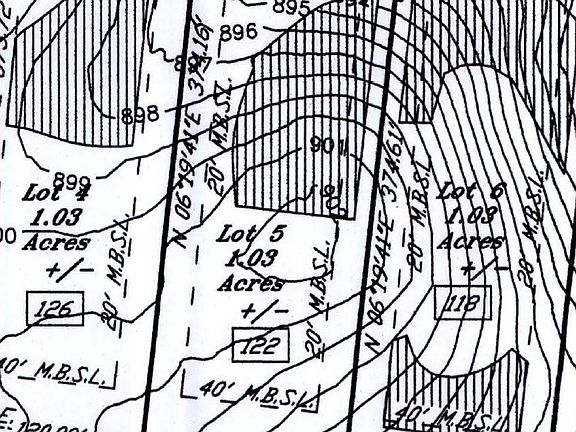 895
896
898
899
901
N 06°19'41"E 374.16'
20' M.B.S.L.
Lot 4
1.03
Acres
+/-
126
20' M.B.S.L.
40' M.B.S.L.
Lot 5
1.03
Acres
+/-
122
20' M.B.S.L.
40' M.B.S.L.
N 06°19'41"E 374.61'
20' M.B.S.L.
Lot 6
1.03
Acres
+/-
118
20' M.B.S.L.
40' M.B.S.L.